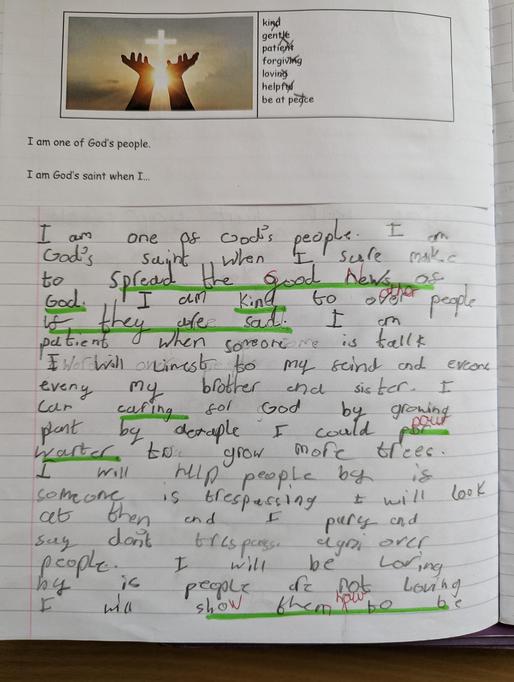 kind
gentle
patient
forgiving
loving
helpful
be at peace
I am one of God's people.
I am God's saint when I...
I am one of God's people. I am
God's saint when I sure make
to spread the Good News of
God. I am kind to other people
if they are sad. I am
patient when someone is tallk
I will oninest to my and
eveny my brother and sister. I
can caring for God by growing
plant by I could pour
warter to grow more trees.
I will help people by is
someone is trespassing I will look
at then and I and
say don't trespass over
people. I will be loving
by is people are not loving
I will show them how to be